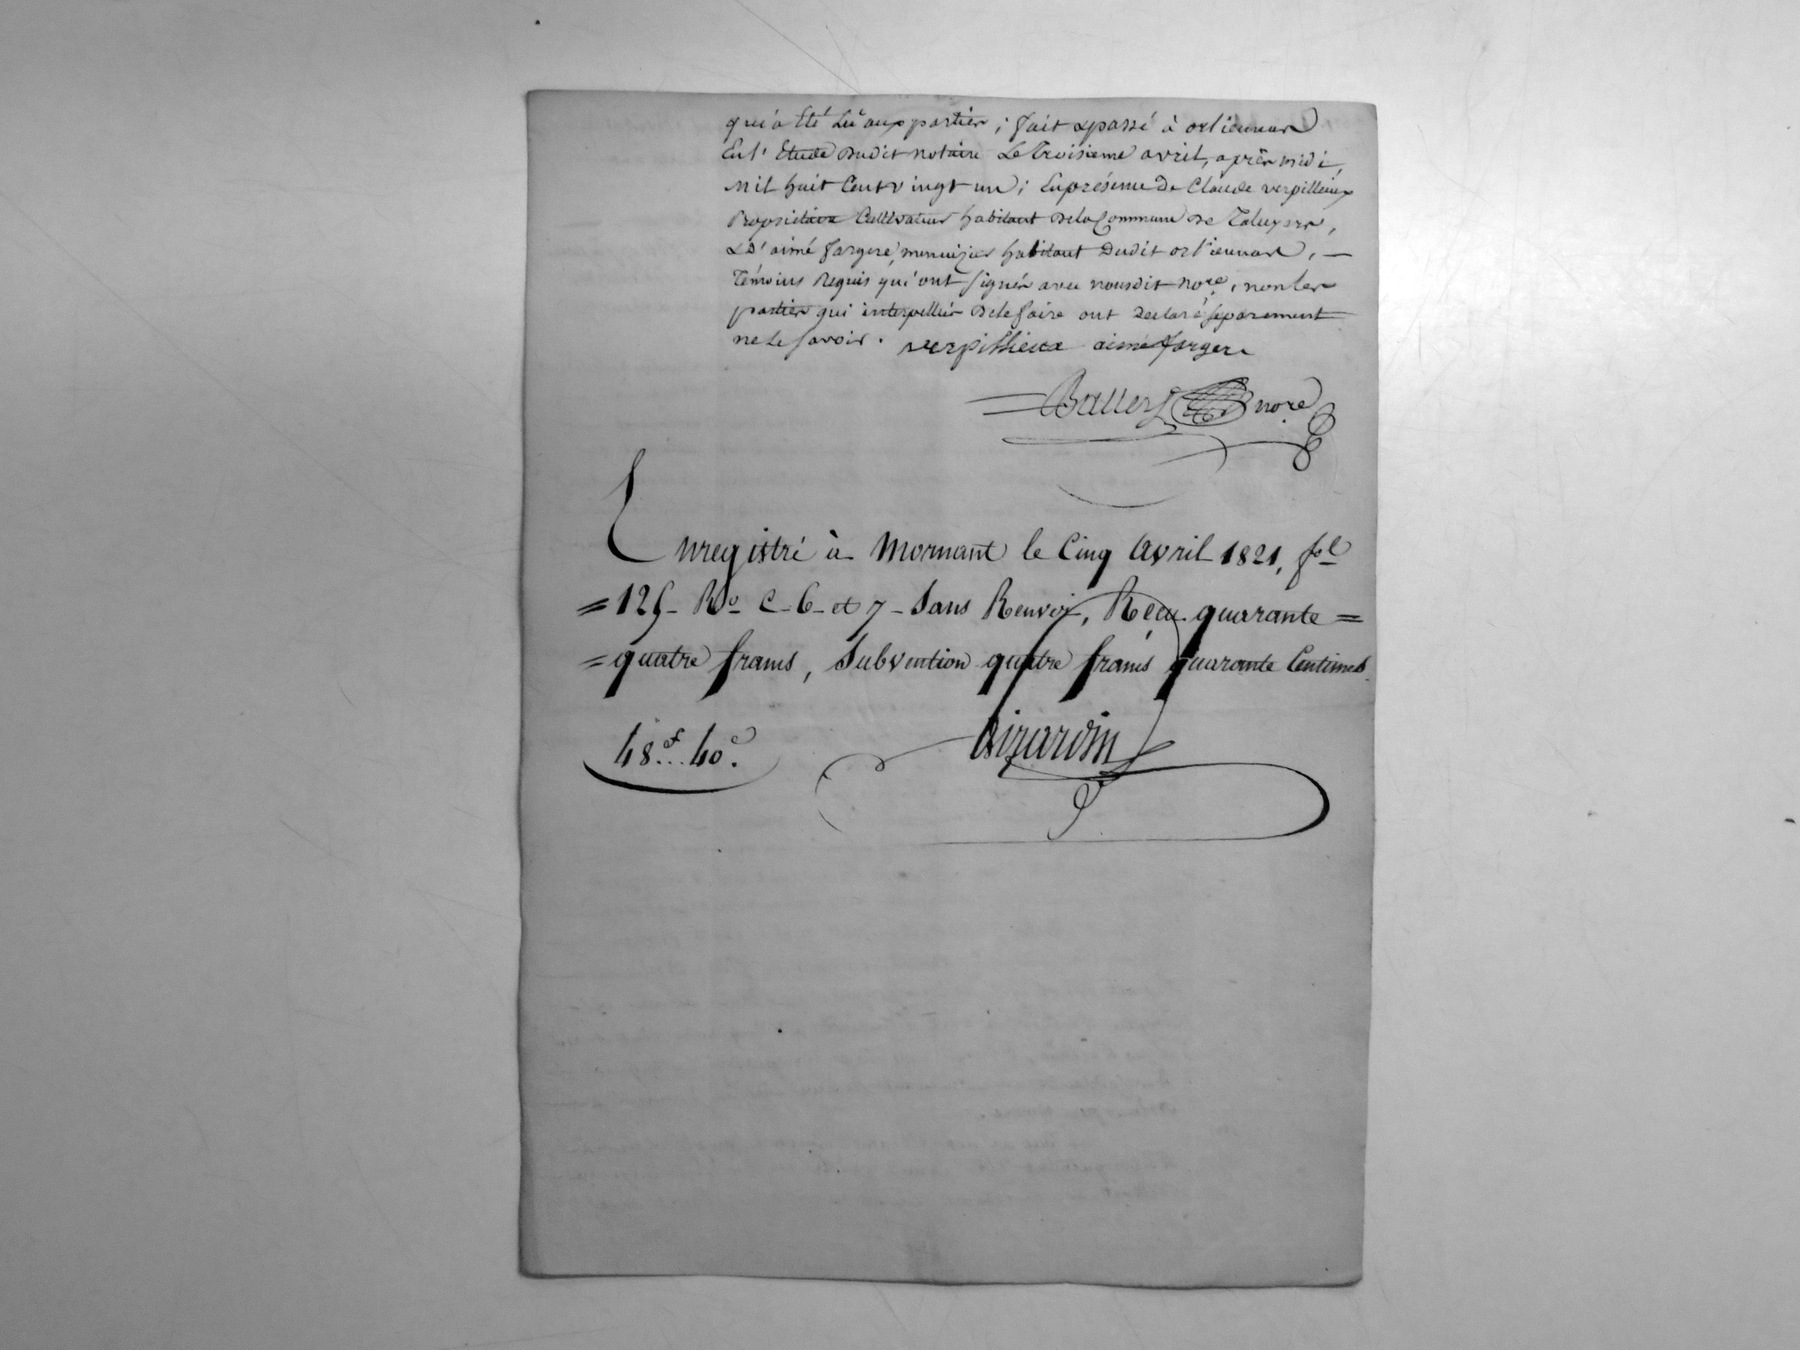 qui a été Lu aux parties ; fait & passé à orliennas
En l'Etude dudit notaire Le troisieme avril, après midi,
mil huit Cent vingt un ; En présence de Claude verpillieux
Propriétaire Cultivateur habitant de la Commune de Taluyers,
& d'aimé fargere, menuizier habitant dudit orliennas, —
Témoins Requis qui ont signés avec nousdit nore, non les
parties qui interpellées de le faire ont declaré séparement
ne le savoir. verpillieux aimé fargere
nore
Enregistré à Mornant le Cinq Avril 1821, fol
= 125 - Ro C - 6 - et 7 - Sans Renvoi, Reçu quarante =
= quatre francs, Subvention quatre francs quarante Centimes
48.f... 40.c
Girardin